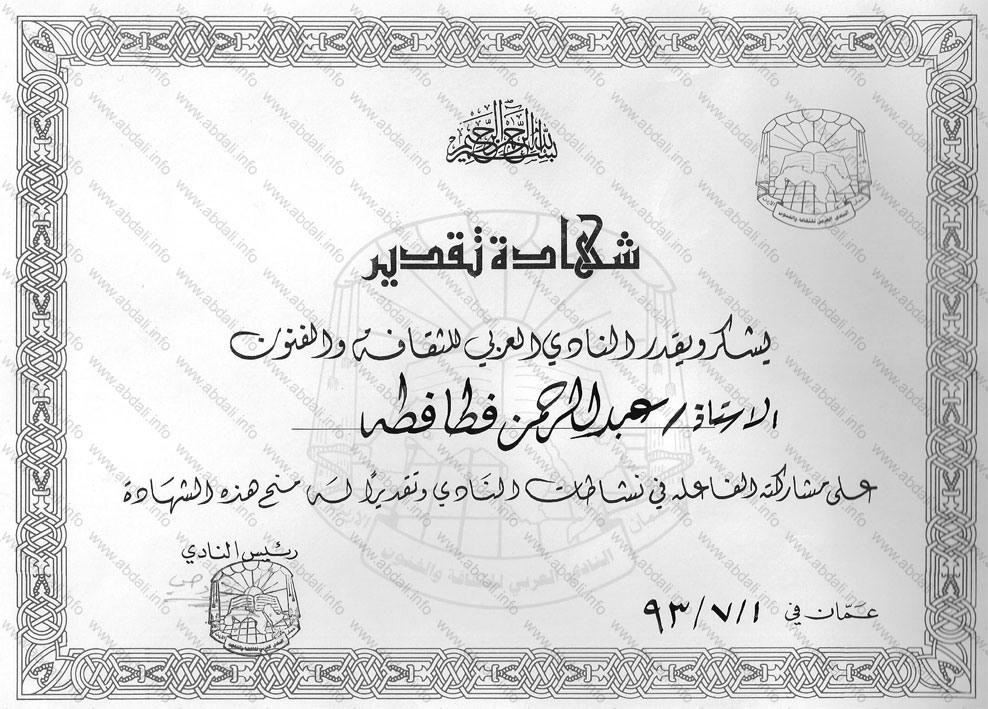 بسم الله الرحمن الرحيم
النادي العربي للثقافة والفنون
شهادة تقدير
يشكر ويقدر النادي العربي للثقافة والفنون
الاستاذ / عبد الرحمن فطافطه
على مشاركته الفاعله في نشاطات النادي وتقديرًا له منح هذه الشهادة
عمان
الاردن
النادي العربي للثقافة والفنون
رئيس النادي
عمّان في ٩٣/٧/١
www.abdali.info